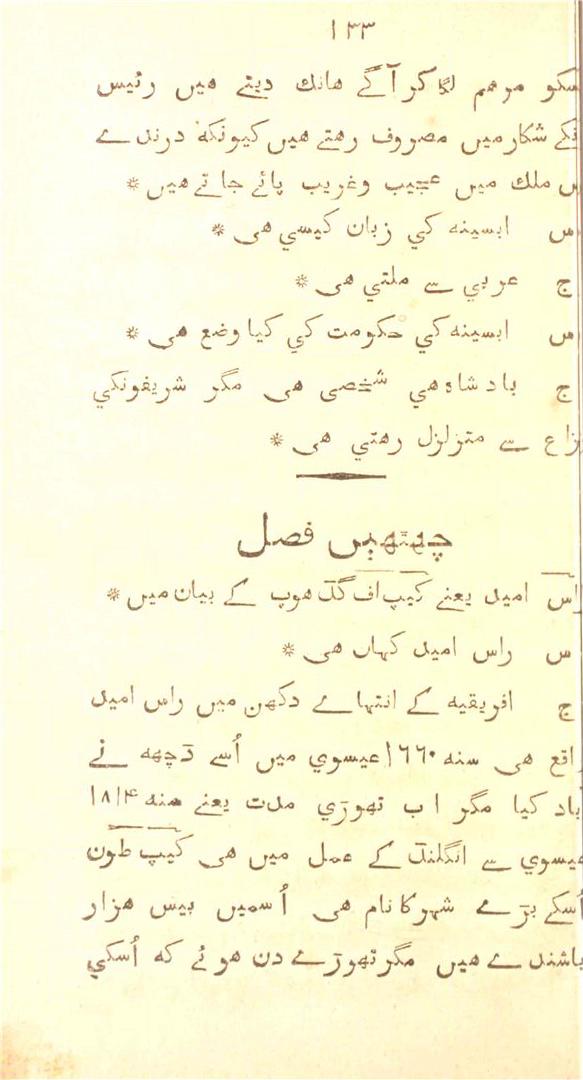 ۱۳۳
سکو مرهم لگا کر آگے هانك دیتے هیں رئیس
نکے شکار میں مصروف رهتے هیں کیونکہ درندے
س ملك میں عجیب وغریب پائے جاتے هیں *
س ابسینہ کي زبان کیسي هی *
ج عربي سے ملتي هی *
س ابسینہ کي حکومت کي کیا وضع هی *
ج بادشاہ هي شخصی هی مگر شریفونکي
نزاع سے متزلزل رهتي هی *
چھتھیں فصل
راس امید یعنے کیپ اف گڈ هوپ کے بیان میں *
س راس امید کہاں هی *
ج افریقیہ کے انتہاے دکھن میں راس امید
راقع هی سنه ۱۶۶۰ عیسوي میں اُسے ڈچھه نے
باد کیا مگر اب تھوڑي مدت یعنے سنه ۱۸۱۴
عیسوي سے انگلنڈ کے عمل میں هی کیپ طون
اُسکے بڑے شہر کا نام هی اُسمیں بیس هزار
باشندے هیں مگر تھوڑے دن هوئے که اُسکي